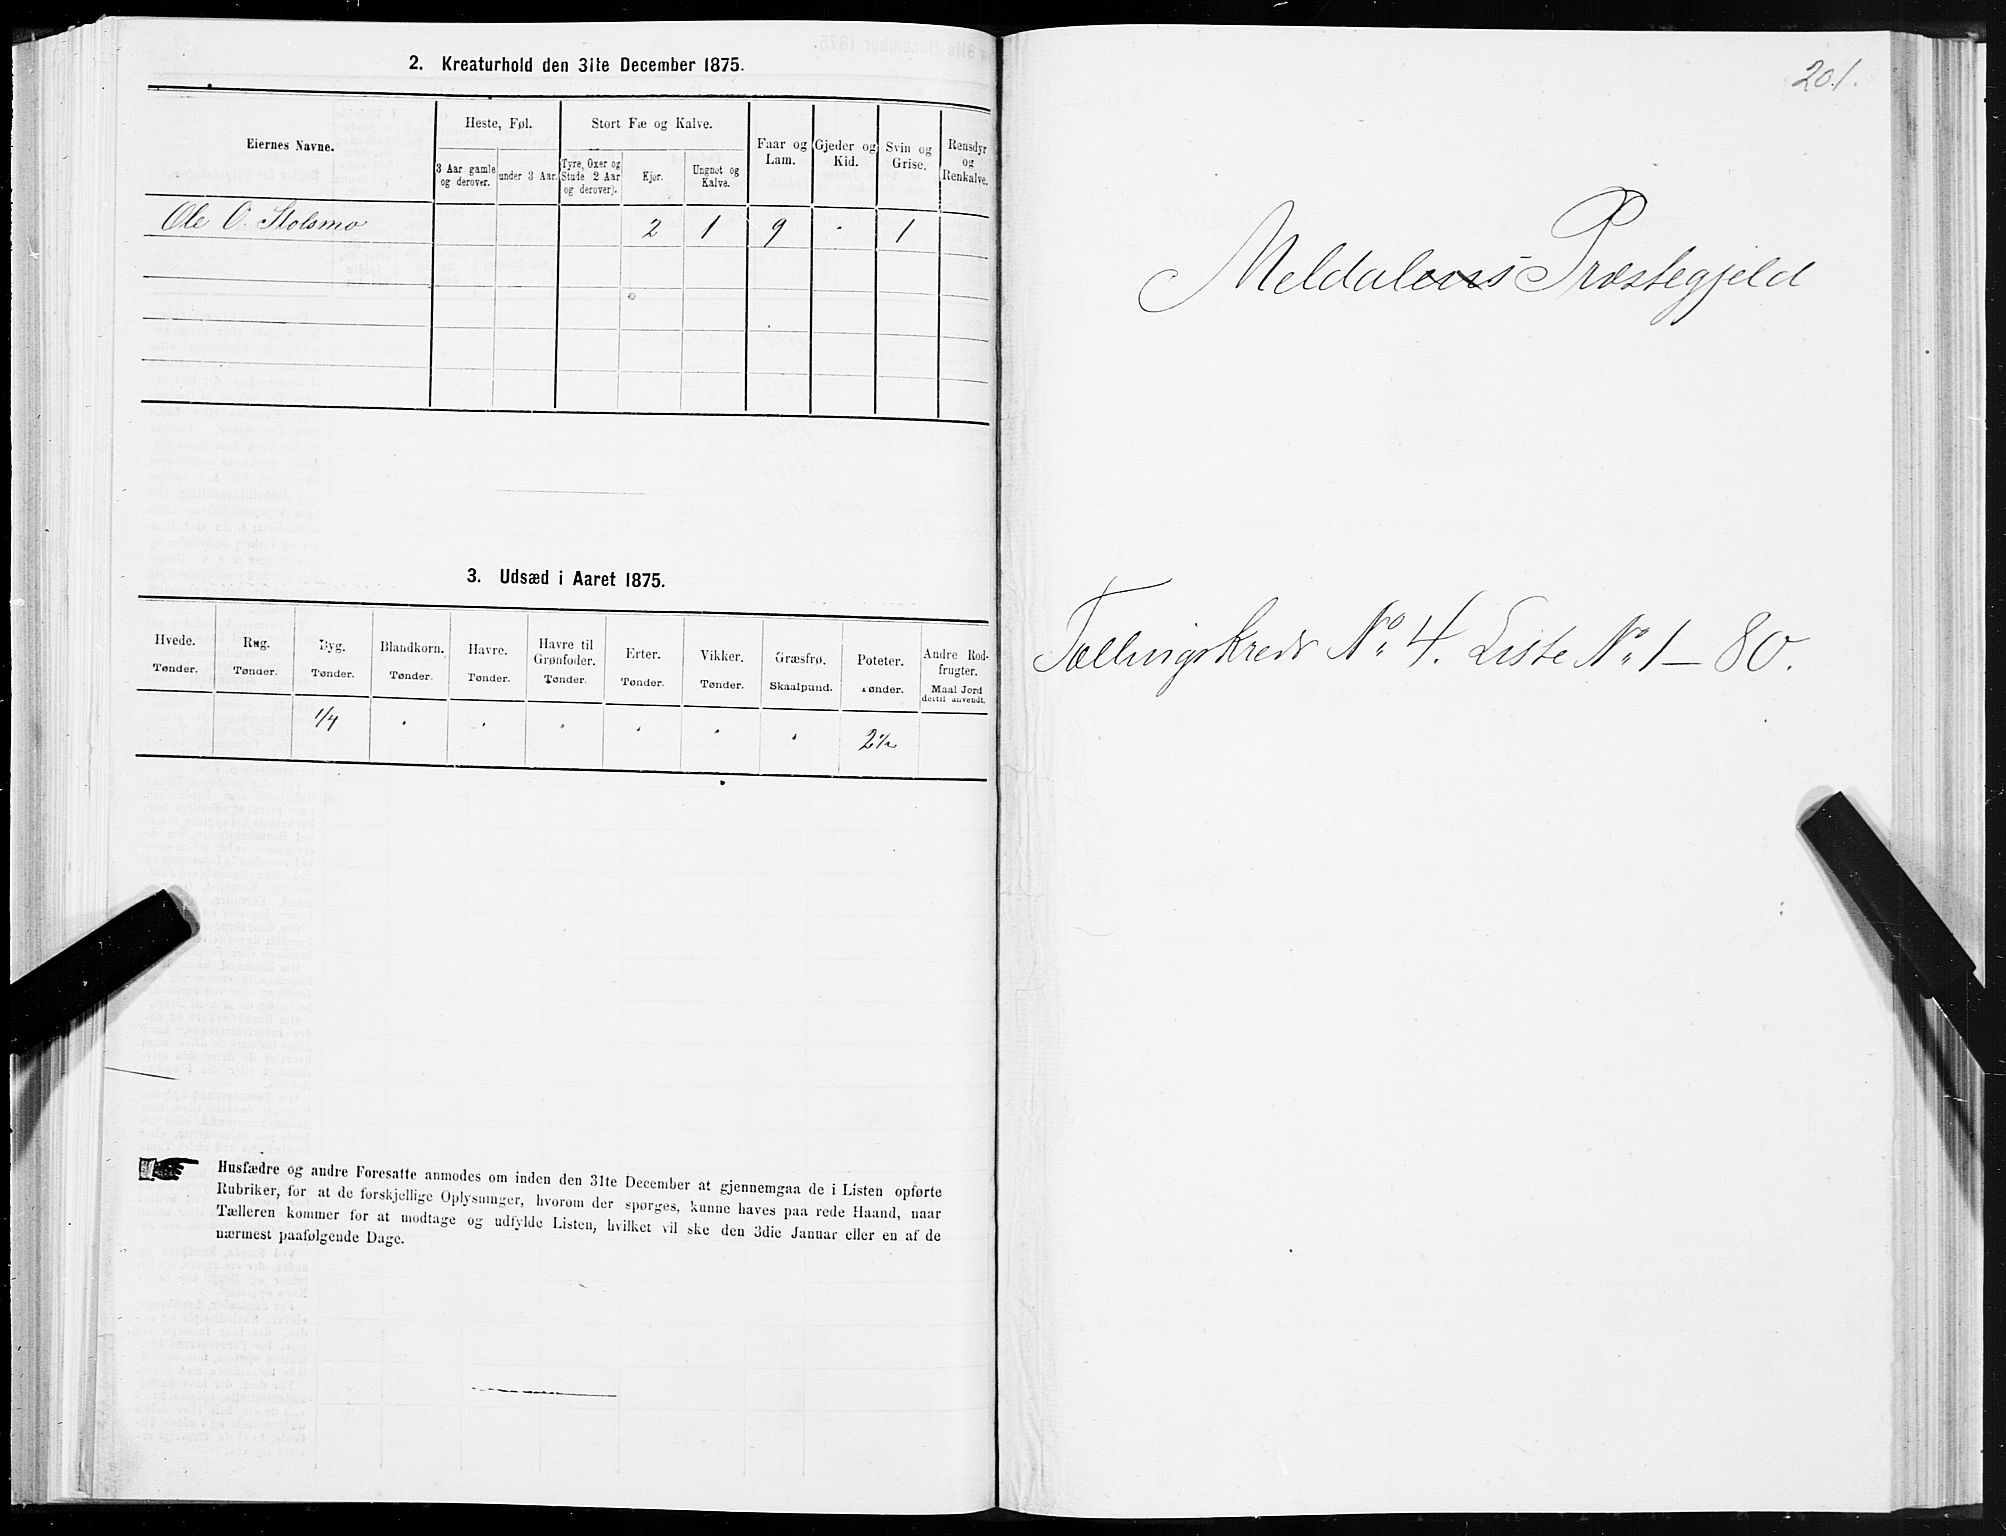 2. Kreaturhold den 31te December 1875.
Eiernes Navne.
Heste, Føl.
Stort Fæ og Kalve.
Faar og Lam.
Gjeder og Kid.
Svin og Grise.
Rensdyr og Renkalve.
3 Aar gamle og derover.
under 3 Aar.
Tyre, Oxer og Stude 2 Aar og derover).
Kjør.
Ungnøt og Kalve.
Ole O. Stolsmo 2 1 9 " 1
3. Udsæd i Aaret 1875.
Hvede. Tønder.
Rug. Tønder.
Byg. Tønder.
Blandkorn. Tønder.
Havre. Tønder.
Havre til Grønfoder. Tønder.
Erter. Tønder.
Vikker. Tønder.
Græsfrø. Skaalpund.
Poteter. Tønder.
Andre Rodfrugter. Maal Jord dertil anvendt.
1/4 " " " " " " 2 1/2
Husfædre og andre Foresatte anmodes om inden den 31te December at gjennemgaa de i Listen opførte
Rubriker, for at de forskjellige Oplysninger, hvorom der spørges, kunne haves paa rede Haand, naar
Tælleren kommer for at modtage og udfylde Listen, hvilket vil ske den 3die Januar eller en af de
nærmest paafølgende Dage.
201.
Meldalens Præstegjeld
Tællingskreds No. 4. Liste No. 1 – 80.